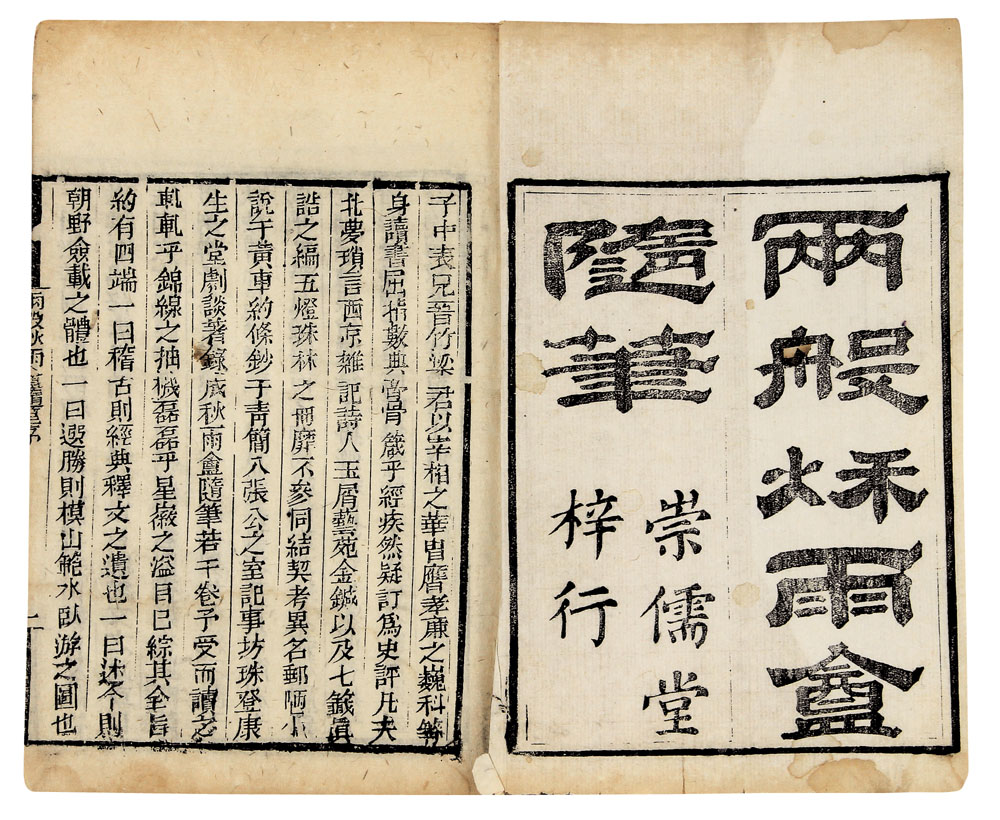 兩般秌雨盦
隨筆
崇儒堂
梓行
子中表兄晉竹梁君以宰相之華胄膺孝廉之巍科等
身讀書屈指數典膏骨籤乎經疾然疑訂爲史評凡夫
北夢瑣言西京雜記詩人玉屑藝苑金鍼以及七籤眞
誥之編五燈珠林之冊靡不參同結契考異名郵
說于黃車約條鈔于靑簡入張公之室記事坊珠登康
生之堂劇談著錄成秋雨盦隨筆若干卷予受而讀之
軋軋乎錦線之抽機磊磊乎星嶽之溢目已綜其全旨
約有四端一曰稽古則經典釋文之遺也一曰述今則
朝野僉載之體也一曰選勝則模山範水臥游之圖也
兩般秋雨盦隨筆序